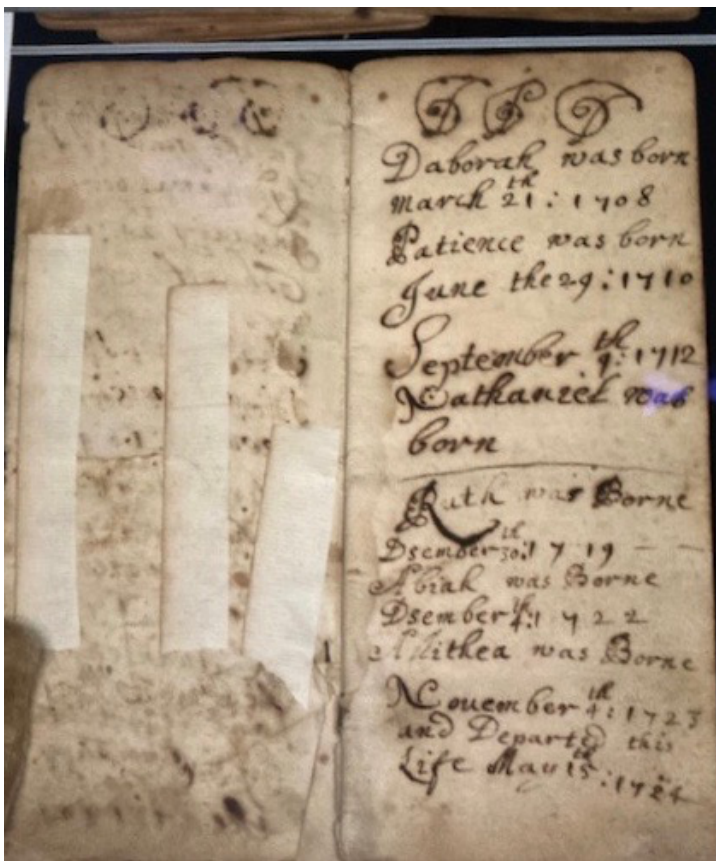 Daborah was born
march 21th : 1708
Patience was born
June the 29 : 1710
September 9th : 1712
Nathaniel was
born
Ruth was Borne
Dsember 30th : 1719
Abiah was Borne
Dsember 4th : 1722
Alithea was Borne
November 4th : 1723
and Departed this
Life May 15th : 1724